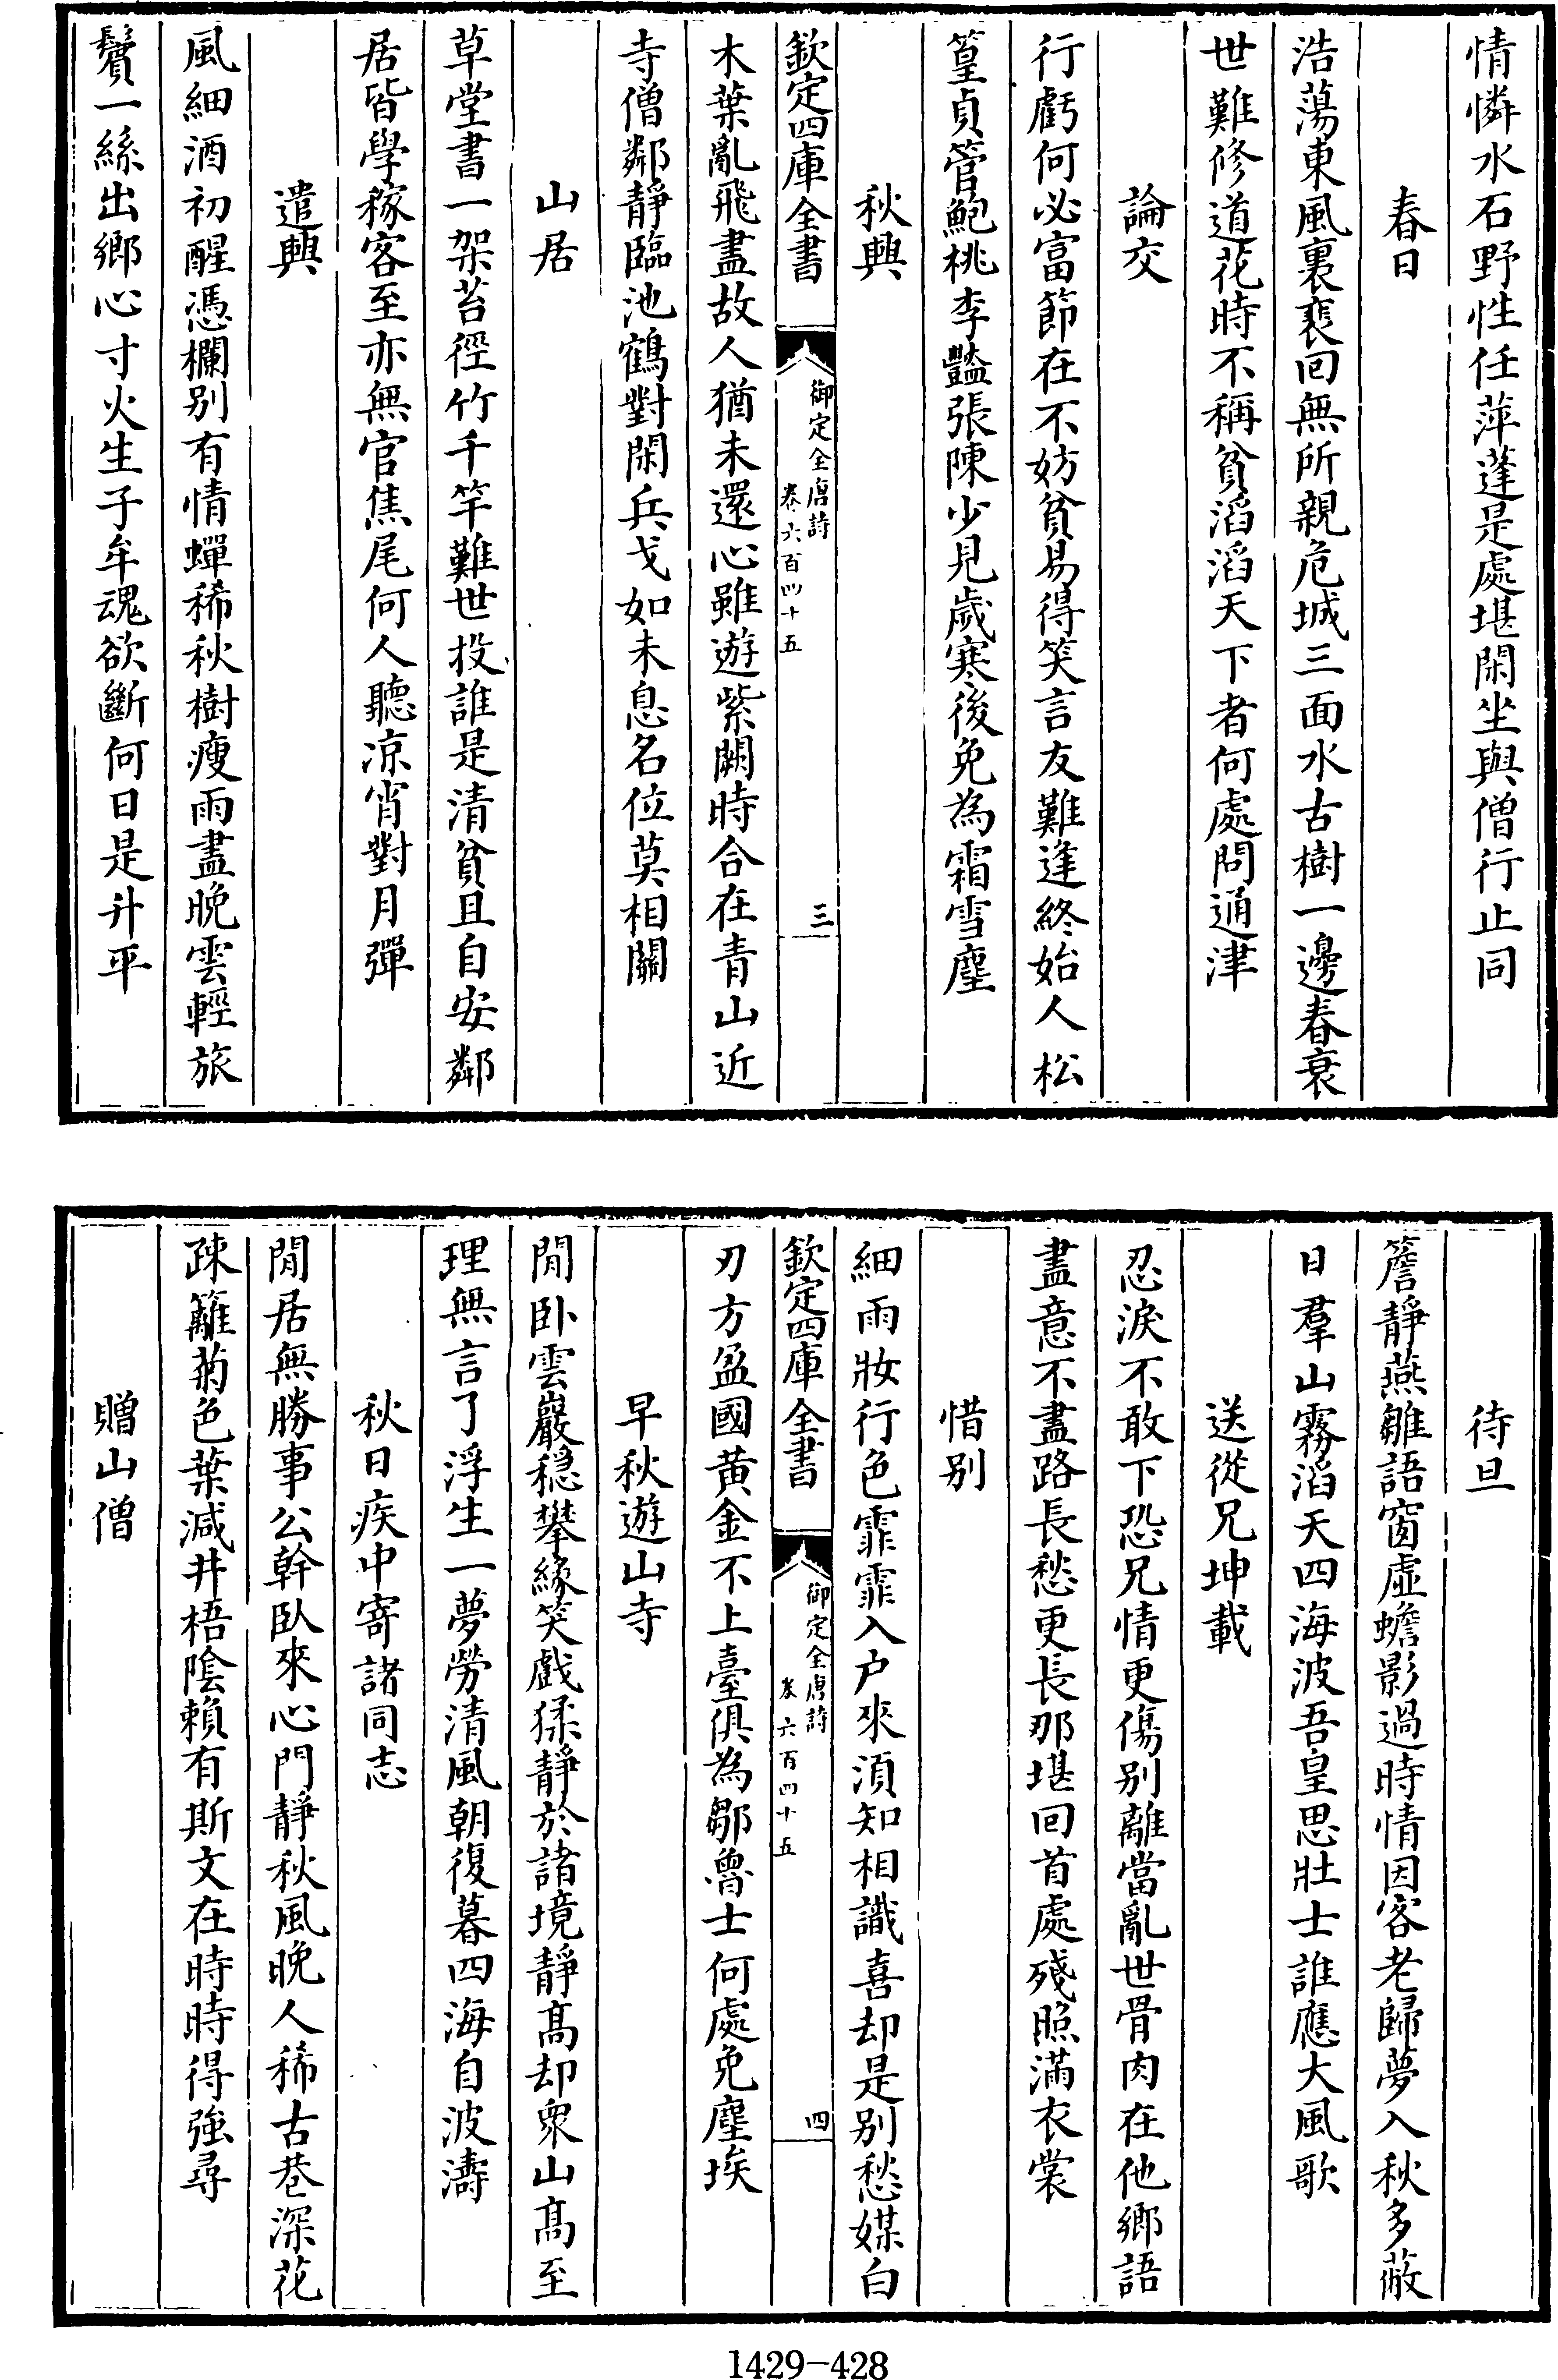 情憐水石野性任萍蓬是處堪閑坐與僧行止同
春日
浩蕩東風裏裵回無所親危城三面水古樹一邊春衰
世難修道花時不稱貧滔滔天下者何處問通津
論交
行虧何必富節在不妨貧易得笑言友難逢終始人松
篁貞管鮑桃李豔張陳少見歲寒後免為霜雪塵
秋興
欽定四庫全書
御定全唐詩
卷六百四十五
三
木葉亂飛盡故人猶未還心雖遊紫闕時合在青山近
寺僧鄰靜臨池鶴對閑兵戈如未息名位莫相關
山居
草堂書一架苔徑竹千竿難世投誰是清貧且自安鄰
居皆學稼客至亦無官焦尾何人聽凉宵對月彈
遣興
風細酒初醒憑欄别有情蟬稀秋樹瘦雨盡晚雲輕旅
鬢一絲出鄉心寸火生子牟魂欲斷何日是升平
待旦
簷靜燕雛語窗虛蟾影過時情因客老歸夢入秋多蔽
日羣山霧滔天四海波吾皇思壯士誰應大風歌
送從兄坤載
忍淚不敢下恐兄情更傷别離當亂世骨肉在他鄉語
盡意不盡路長愁更長那堪回首處殘照滿衣裳
惜别
細雨妝行色霏霏入户來須知相識喜却是别愁媒白
欽定四庫全書
御定全唐詩
卷六百四十五
四
刃方盈國黄金不上臺俱為鄒魯士何處免塵埃
早秋遊山寺
閒卧雲巖穏攀緣笑戲猱靜於諸境靜髙却衆山髙至
理無言了浮生一夢勞清風朝復暮四海自波濤
秋日疾中寄諸同志
閒居無勝事公幹臥來心門靜秋風晚人稀古巷深花
疎籬菊色葉減井梧陰賴有斯文在時時得強尋
贈山僧
1429－428